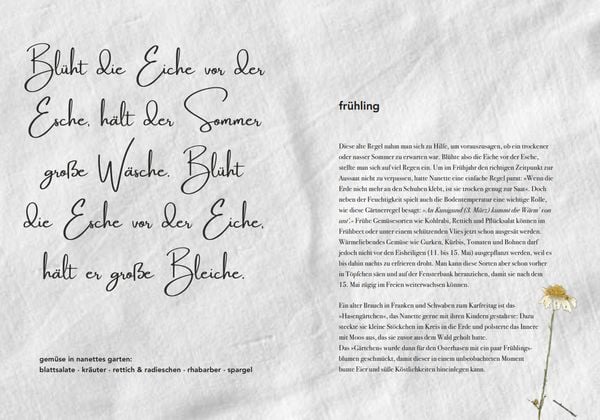 Blüht die Eiche vor der
Esche, hält der Sommer
große Wäsche. Blüht
die Esche vor der Eiche,
hält er große Bleiche.
gemüse in nanettes garten:
blattsalate · kräuter · rettich & radieschen · rhabarber · spargel
frühling
Diese alte Regel nahm man sich zu Hilfe, um vorauszusagen, ob ein trockener
oder nasser Sommer zu erwarten war. Blühte also die Eiche vor der Esche,
stellte man sich auf viel Regen ein. Um im Frühjahr den richtigen Zeitpunkt zur
Aussaat nicht zu verpassen, hatte Nanette eine einfache Regel parat: »Wenn die
Erde nicht mehr an den Schuhen klebt, ist sie trocken genug zur Saat«. Doch
neben der Feuchtigkeit spielt auch die Bodentemperatur eine wichtige Rolle,
wie diese Gärtnerregel besagt: »An Kunigund (3. März) kummt die Wärm' von
unt'.« Frühe Gemüsesorten wie Kohlrabi, Rettich und Pflücksalat können im
Frühbeet oder unter einem schützenden Vlies jetzt schon ausgesät werden.
Wärmeliebendes Gemüse wie Gurken, Kürbis, Tomaten und Bohnen darf
jedoch nicht vor den Eisheiligen (11. bis 15. Mai) ausgepflanzt werden, weil es
bis dahin nachts zu erfrieren droht. Man kann diese Sorten aber schon vorher
in Töpfchen säen und auf der Fensterbank heranziehen, damit sie nach dem
15. Mai zügig im Freien weiterwachsen können.
Ein alter Brauch in Franken und Schwaben zum Karfreitag ist das
»Hasengärtchen«, das Nanette gerne mit ihren Kindern gestaltete: Dazu
steckte sie kleine Stöckchen im Kreis in die Erde und polsterte das Innere
mit Moos aus, das sie zuvor aus dem Wald geholt hatte.
Das »Gärtchen« wurde dann für den Osterhasen mit ein paar Frühlings-
blumen geschmückt, damit dieser in einem unbeobachteten Moment
bunte Eier und süße Köstlichkeiten hineinlegen kann.